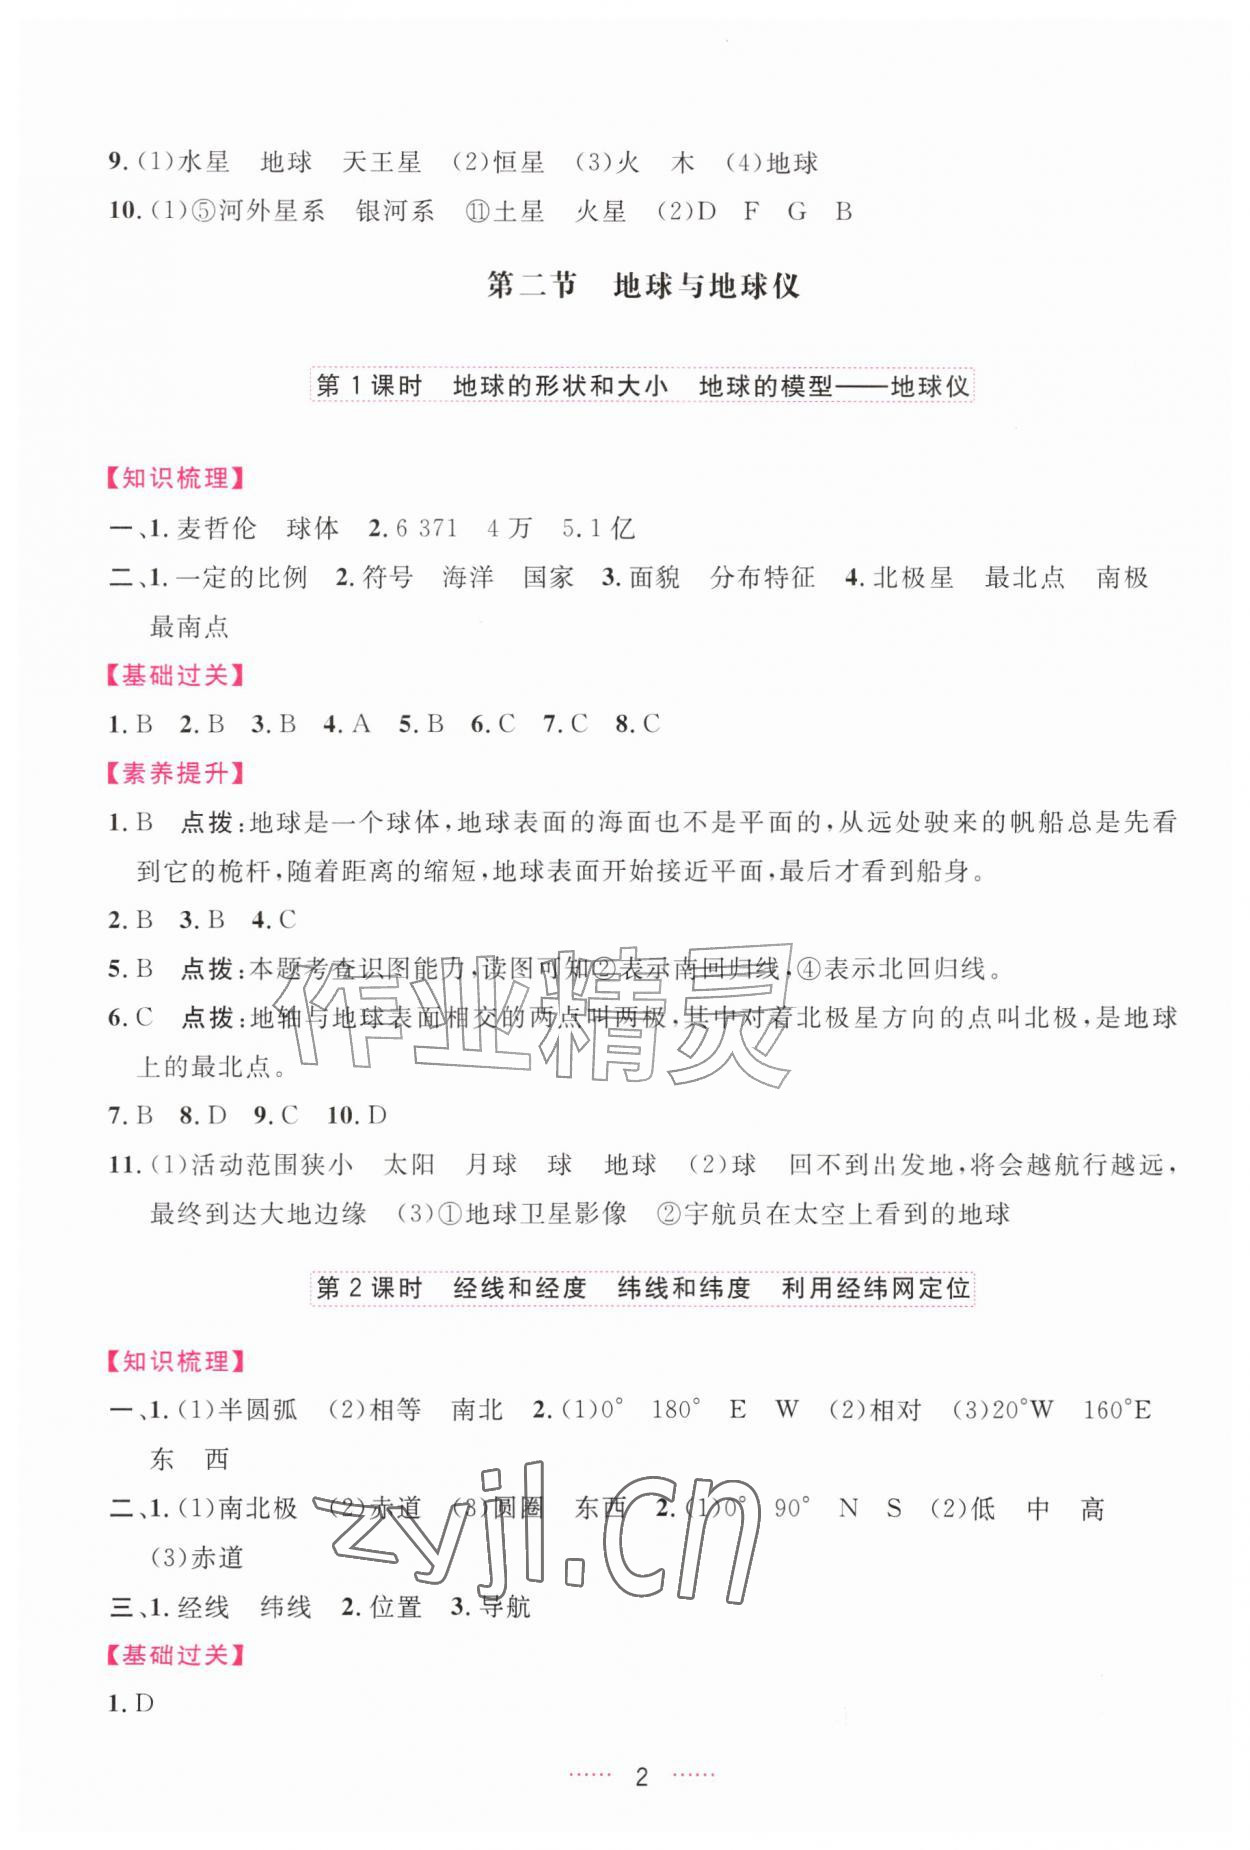 9.(1)水星　地球　天王星　(2)恒星　(3)火　木　(4)地球
10.(1)⑤河外星系　银河系　⑪土星　火星　(2)D　F　G　B
第二节　地球与地球仪
第1课时　地球的形状和大小　地球的模型——地球仪
【知识梳理】
一、1.麦哲伦　球体　2.6 371　4万　5.1亿
二、1.一定的比例　2.符号　海洋　国家　3.面貌　分布特征　4.北极星　最北点　南极
最南点
【基础过关】
1.B　2.B　3.B　4.A　5.B　6.C　7.C　8.C
【素养提升】
1.B　点拨:地球是一个球体,地球表面的海面也不是平面的,从远处驶来的帆船总是先看
到它的桅杆,随着距离的缩短,地球表面开始接近平面,最后才看到船身。
2.B　3.B　4.C
5.B　点拨:本题考查识图能力,读图可知②表示南回归线,④表示北回归线。
6.C　点拨:地轴与地球表面相交的两点叫两极,其中对着北极星方向的点叫北极,是地球
上的最北点。
7.B　8.D　9.C　10.D
11.(1)活动范围狭小　太阳　月球　球　地球　(2)球　回不到出发地,将会越航行越远,
最终到达大地边缘　(3)①地球卫星影像　②宇航员在太空上看到的地球
第2课时　经线和经度　纬线和纬度　利用经纬网定位
【知识梳理】
一、1.(1)半圆弧　(2)相等　南北　2.(1)0°　180°　E　W　(2)相对　(3)20°W　160°E
东　西
二、1.(1)南北极　(2)赤道　(3)圆圈　东西　2.(1)0°　90°　N　S　(2)低　中　高
(3)赤道
三、1.经线　纬线　2.位置　3.导航
【基础过关】
1.D
2
作业精灵
zyjl.cn